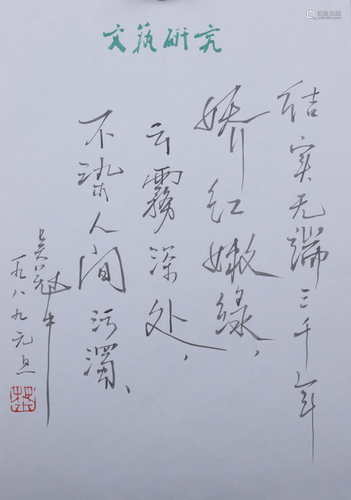 文艺研究
结实无端三千年
娇红嫩绿，
云霧深处，
不染人间污浊、
吴冠中
一九八九元旦